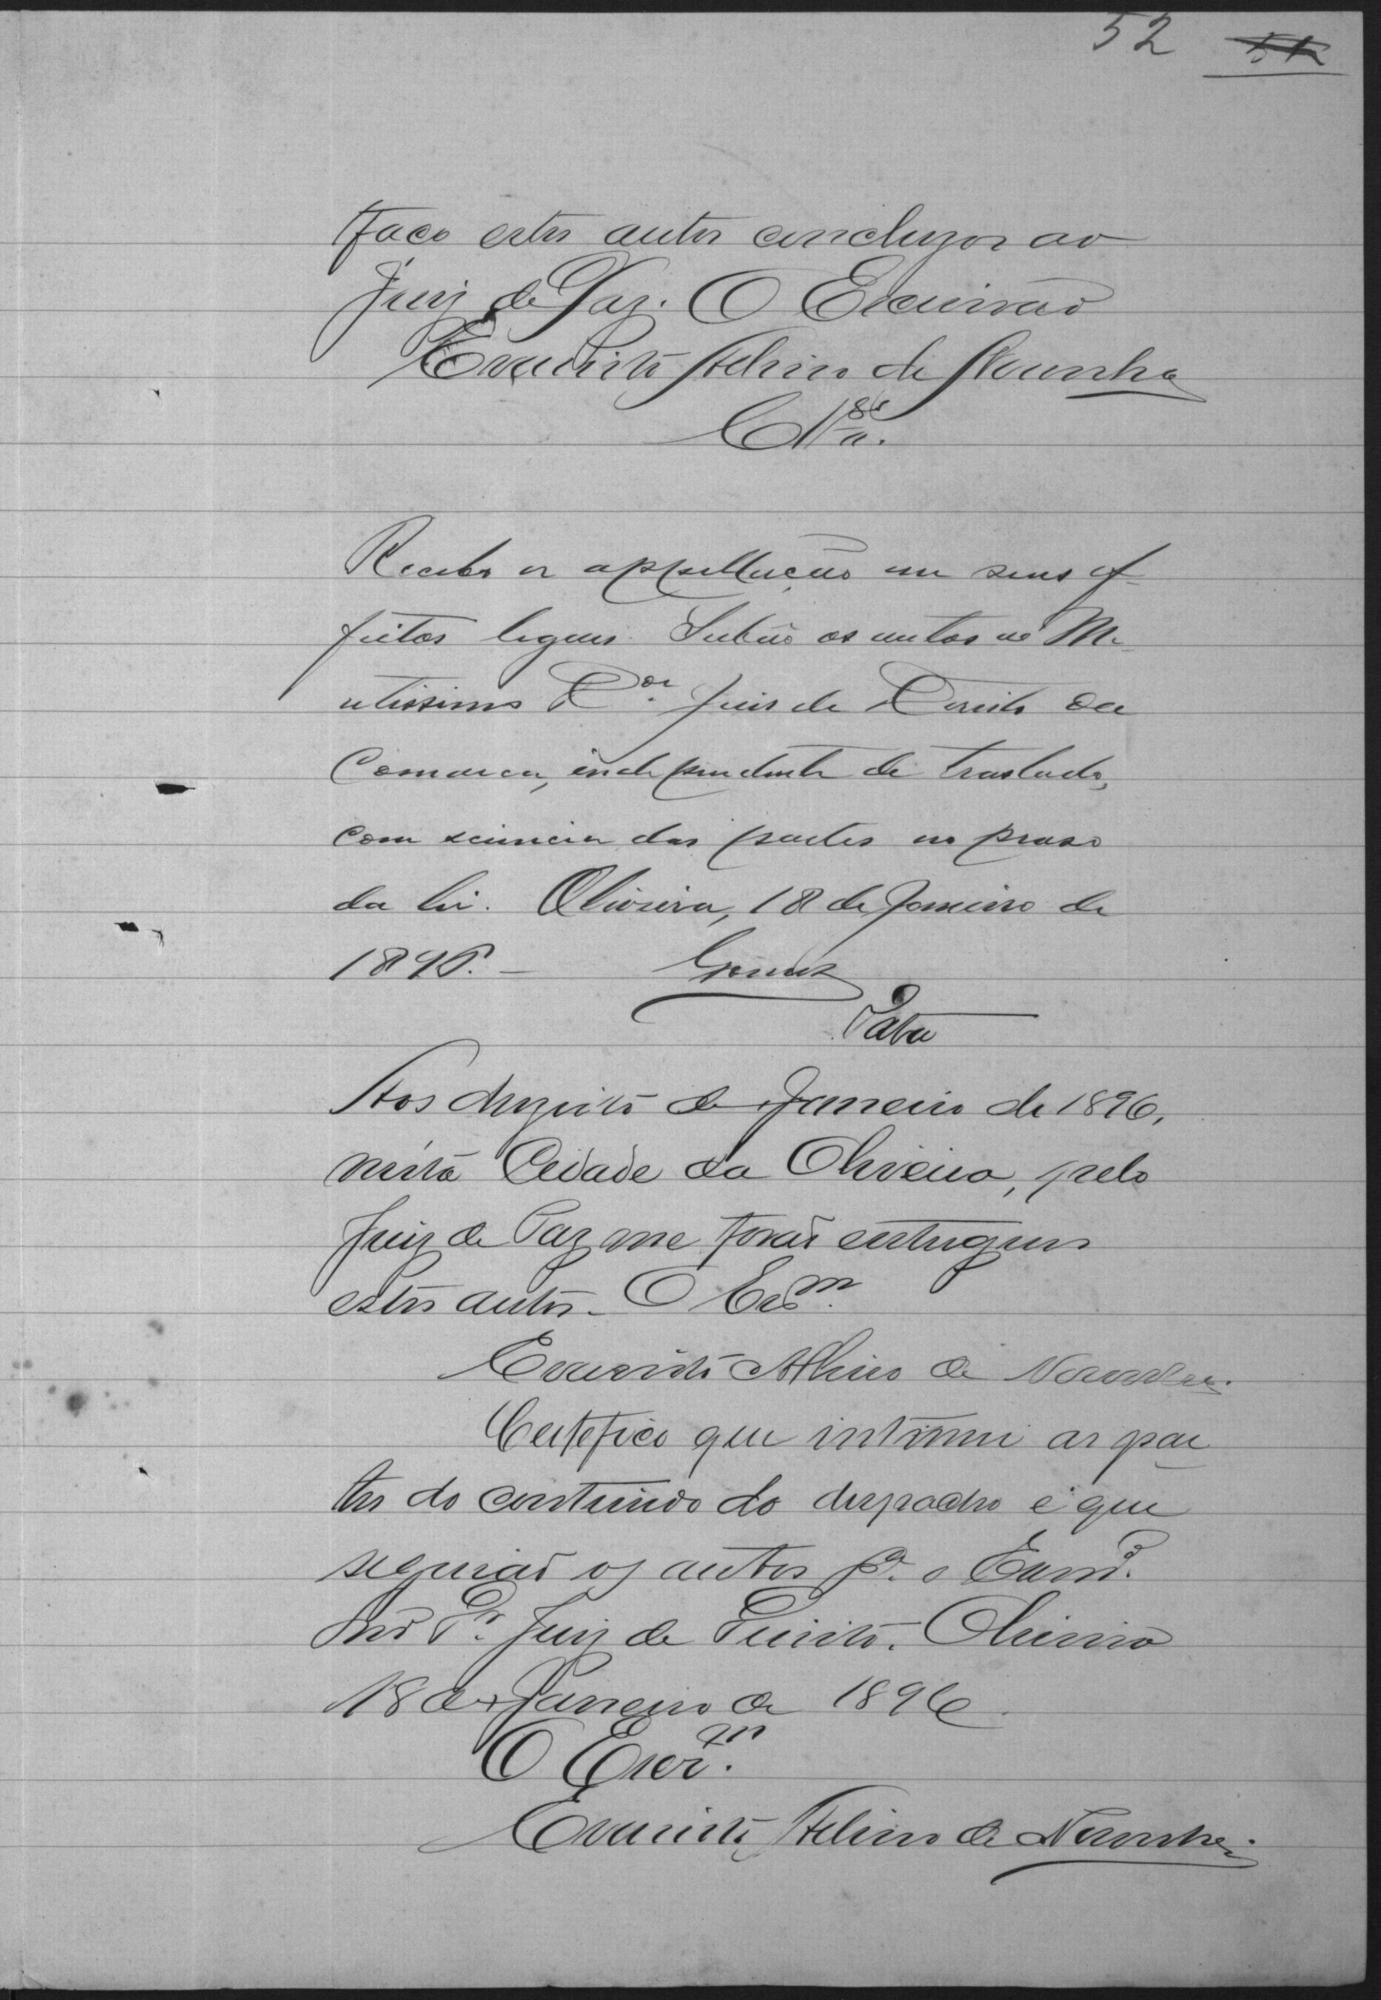 52
faço estes autos concluzos ao
Juiz de Paz. O Escrivão
Evaristo Albino de Noronha
Clos
Recebo a appellação em seus ef-
feitos legaes. Subão os autos ao Me-
ritissimo Dor. Juis de Direito da
Comarca, independente de traslado,
com sciencia das partes no praso
da lei. Oliveira, 18 de Janeiro de
1896. Gomes
Data
Aos dezoito de Janeiro de 1896,
nesta Cidade da Oliveira, pelo
Juiz de Paz me forão entregues
estes autos. O Escm.
Evaristo Albino de Noronha.
Certefico que intimei as par
tes do contiudo do despacho e que
seguirão os autos pa. o
Dr. Juiz de Direito. Oliveira
18 de Janeiro de 1896
O Escram.
Evaristo Albino de Noronha.